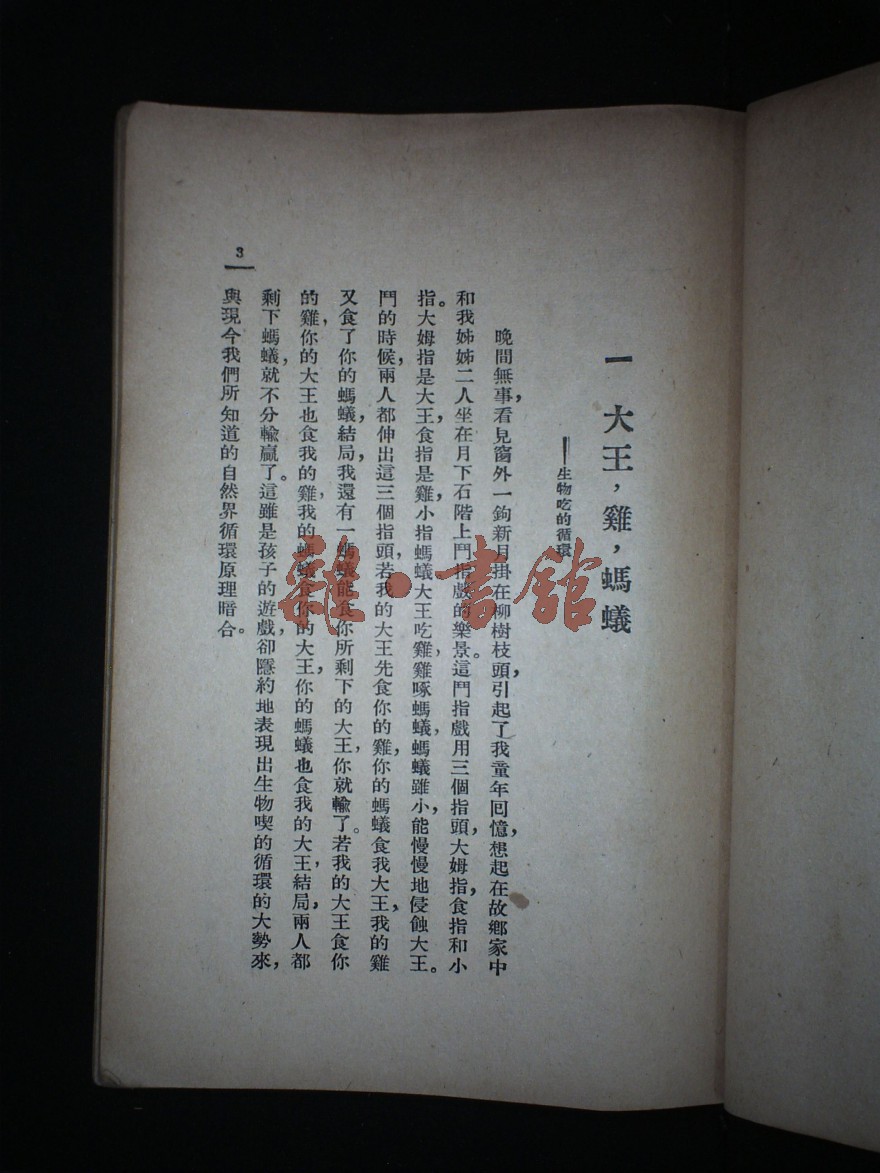 一　大王，雞，螞蟻
——生物吃的循環
晚間無事，看見窗外一鉤新月掛在柳樹枝頭，引起了我童年回憶，想起在故鄉家中
和我姊姊二人坐在月下石階上鬥指戲的樂景。這鬥指戲用三個指頭，大姆指，食指和小
指。大姆指是大王，食指是雞，小指螞蟻。大王吃雞，雞啄螞蟻，螞蟻雖小，能慢慢地侵蝕大王。
鬥的時候，兩人都伸出這三個指頭，若我的大王先食你的雞，你的螞蟻食我大王，我的雞
又食了你的螞蟻，結局，我還有一螞蟻能食你所剩下的大王，你就輸了。若我的大王食你
的雞，你的大王也食我的雞，我的螞蟻食你的大王，你的螞蟻也食我的大王，結局，兩人都
剩下螞蟻，就不分輸贏了。這雖是孩子的遊戲，卻隱約地表現出生物喫的循環的大勢來，
與現今我們所知道的自然界循環原理暗合。
3
雜·書館